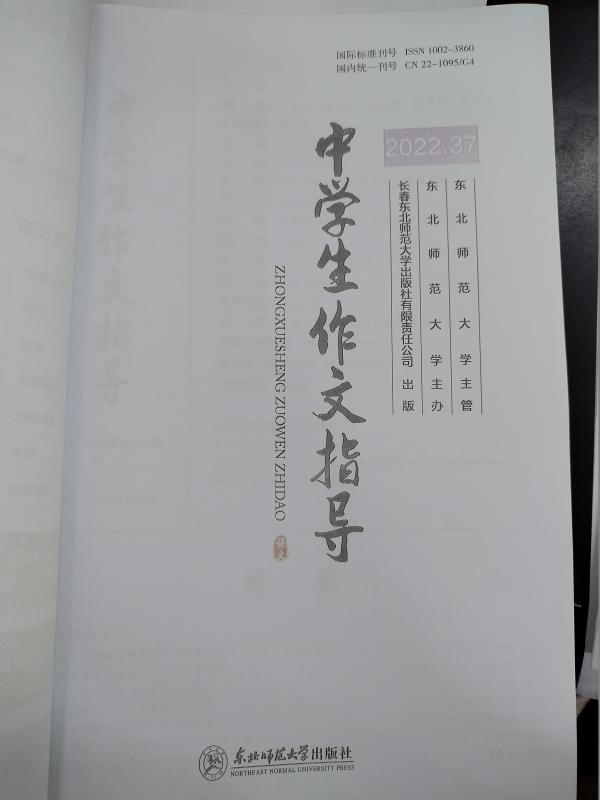 国际标准刊号 ISSN 1002-3860
国内统一刊号 CN 22-1095/G4
2022.37
东北师范大学主管
东北师范大学主办
长春东北师范大学出版社有限责任公司 出版
中学生作文指导
ZHONGXUESHENG ZUOWEN ZHIDAO
语文
东北师范大学出版社
NORTHEAST NORMAL UNIVERSITY PRESS